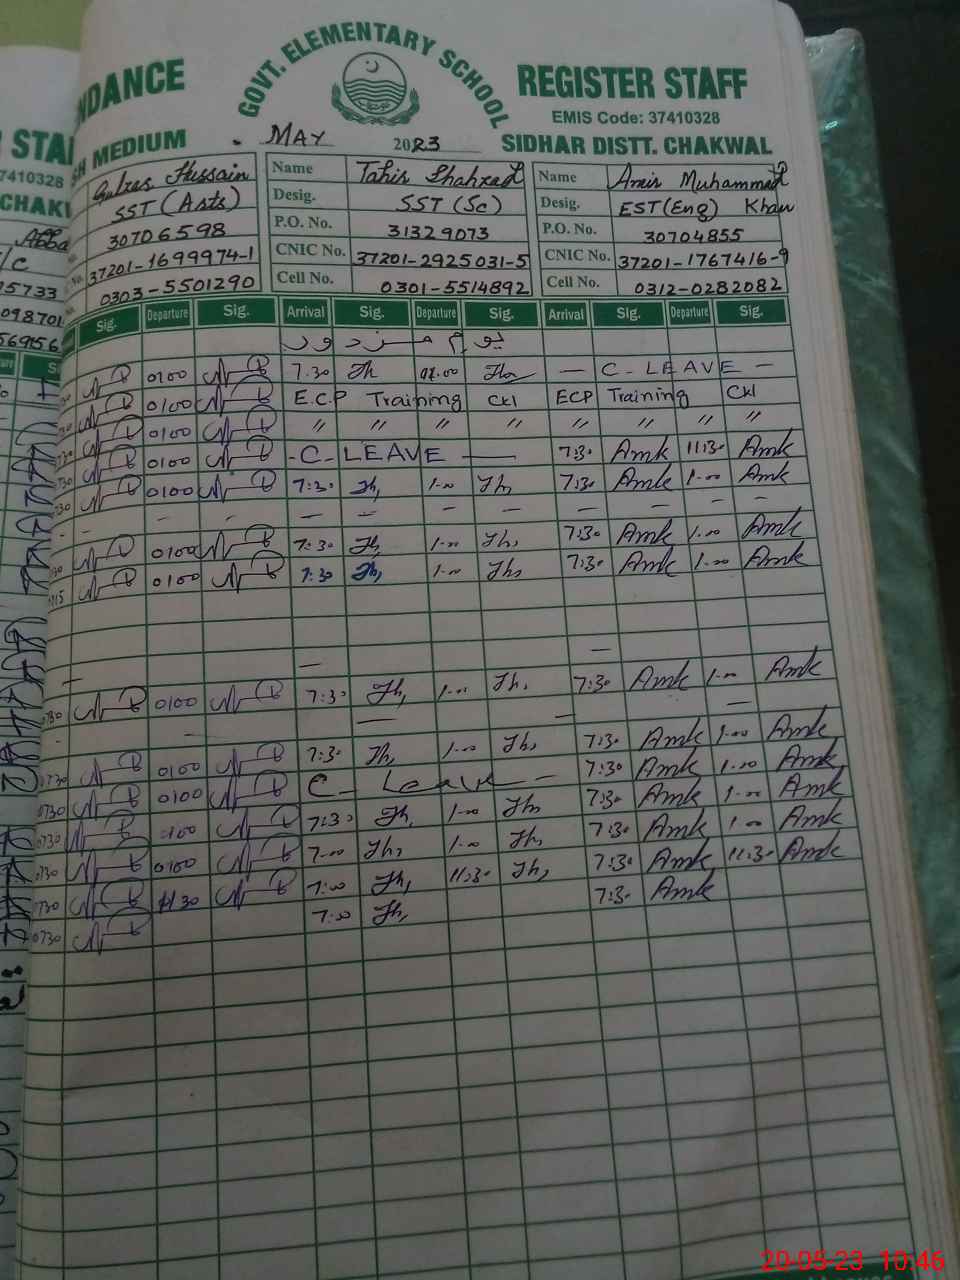 NDANCE GOVT. ELEMENTARY SCHOOL REGISTER STAFF
EMIS Code: 37410328
SH MEDIUM MAY 2023 SIDHAR DISTT. CHAKWAL
Gulras Hussain Name Tahir Shahzad Name Amir Muhammad Khan
SST (Arts) Desig. SST (Sc) Desig. EST (Eng)
30706598 P.O. No. 31329073 P.O. No. 30704855
37201-1699974-1 CNIC No. 37201-2925031-5 CNIC No. 37201-1767416-9
0303-5501290 Cell No. 0301-5514892 Cell No. 0312-0282082
Sig. Departure Sig. Arrival Sig. Departure Sig. Arrival Sig. Departure Sig.
یوم مزدور
0100 7:30 Th 01.00 Th — C- LEAVE —
0100 E.C.P Training Ckl ECP Training Ckl
0100 〃 〃 〃 〃 〃 〃 〃 〃
0100 -C- LEAVE — 7:30 Amk 11:30 Amk
0100 7:30 Th, 1-00 Th, 7:30 Amk 1-00 Amk
- - - - - - - - -
0100 7:30 Th, 1-00 Th, 7:30 Amk 1-00 Amk
0100 7:30 Th, 1-00 Th, 7:30 Amk 1-00 Amk
0730 0100 7:30 Th, 1-00 Th, 7:30 Amk 1-00 Amk
0730 0100 7:30 Th, 1-00 Th, 7:30 Amk 1-00 Amk
0730 0100 C- Leave — 7:30 Amk 1-00 Amk
0730 0100 7:30 Th, 1-00 Th 7:30 Amk 1-00 Amk
0730 0100 7-00 Th, 1-00 Th, 7:30 Amk 1-00 Amk
0730 1130 7:00 Th, 11:30 Th, 7:30 Amk 11:30 Amk
0730 7:00 Th, 7:30 Amk
20-05-23 10:46